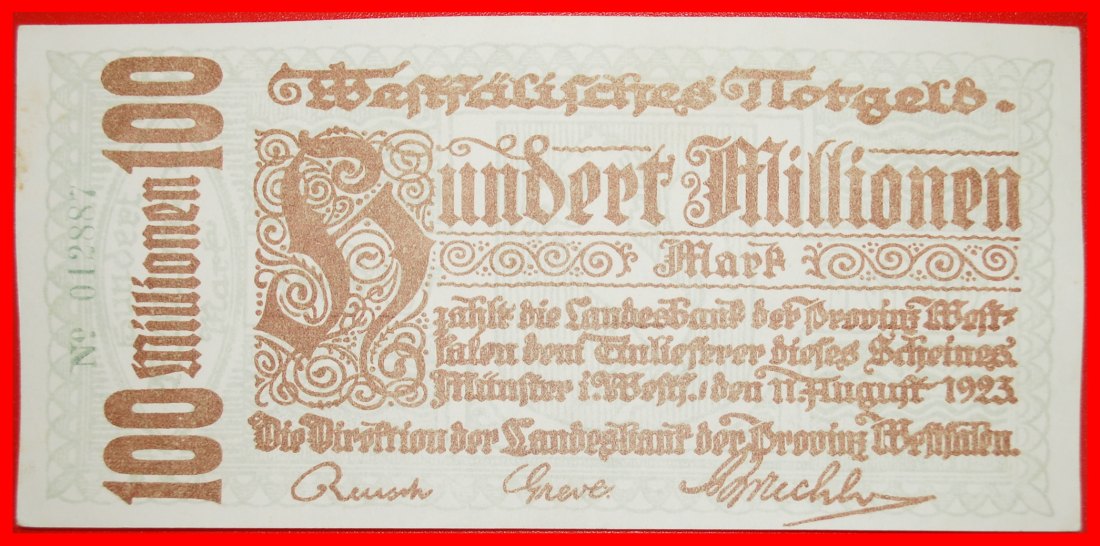 100 millionen 100
№ 012887
Westfälisches Notgeld.
Hundert Millionen
Mark
zahlt die Landesbank der Provinz West-
falen dem Einlieferer dieses Scheines
Münster i. Westf., den 11. August 1923
Die Direktion der Landesbank der Provinz Westfalen.
Reusch Greve.